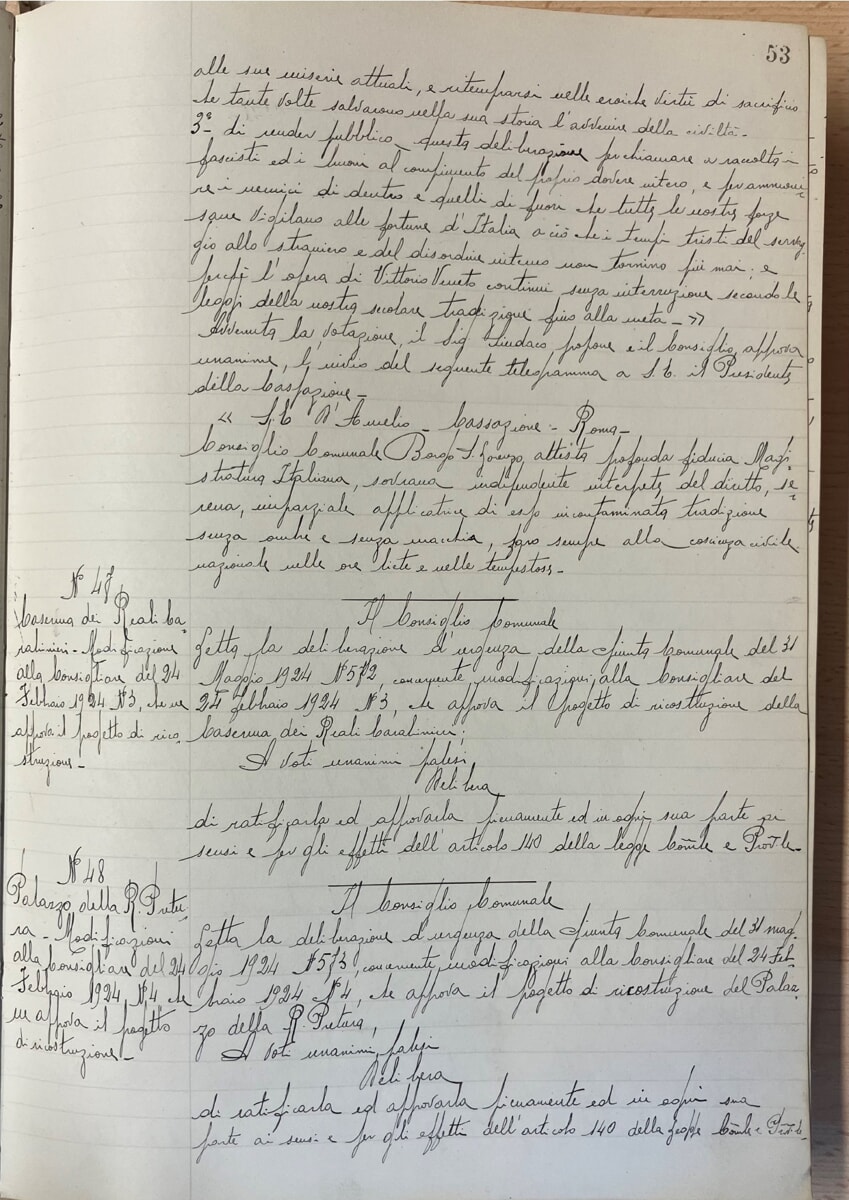 53
alle sue miserie attuali, e ritemprarsi nelle eroiche virtù di sacrificio
che tante volte salvarono nella sua storia l'avvenire della civiltà.
3º di render pubblica questa deliberazione per chiamare a raccolta i
fascisti ed i buoni al compimento del proprio dovere intero, e per ammoni-
re i nemici di dentro e quelli di fuori che tutte le nostre forze
sane vigilano alle fortune d'Italia a ciò che i tempi tristi del servag-
gio allo straniero e del disordine interno non tornino più mai; e
perchè l'opera di Vittorio Veneto continui senza interruzione secondo le
leggi della nostra secolare tradizione fino alla meta - »
Avvenuta la votazione, il Sig. Sindaco propone e il Consiglio, approva
unanime, l'invio del seguente telegramma a S.E. il Presidente
della Cassazione -
« S.E. D'Amelio - Cassazione - Roma -
Consiglio Comunale Borgo S. Lorenzo, attesta profonda fiducia Magi-
stratura Italiana, sovrana indipendente interprete del diritto, se-
rena, imparziale applicatrice di esso incontaminata tradizione
senza ombre e senza macchia, faro sempre alla coscienza civile
nazionale nelle ore liete e nelle tempestose -
Nº 47
Caserma dei Reali Ca-
rabinieri - Modificazione
alla Consigliare del 24
Febbraio 1924 Nº 3, che ne
approva il progetto di rico-
struzione -
Il Consiglio Comunale
Letta la deliberazione d'urgenza della Giunta Comunale del 31
Maggio 1924 Nº 572, concernente, modificazioni, alla Consigliare del
24 febbraio 1924 Nº 3, che approva il progetto di ricostruzione della
Caserma dei Reali Carabinieri;
A voti unanimi palesi
Delibera
di ratificarla ed approvarla pienamente ed in ogni sua parte ai
sensi e per gli effetti dell'articolo 140 della legge Com̃le e Proṽle -
Nº 48
Palazzo della R. Pretu-
ra - Modificazioni
alla Consigliare del 24
Febbraio 1924 Nº 4, che
ne approva il progetto
di ricostruzione -
Il Consiglio Comunale
Letta la deliberazione d'urgenza della Giunta Comunale del 31 mag-
gio 1924 Nº 573, concernente, modificazioni alla Consigliare del 24 Feb-
braio 1924 Nº 4, che approva il progetto di ricostruzione del Palaz-
zo della R. Pretura,
A voti unanimi, palesi
Delibera
di ratificarla ed approvarla pienamente ed in ogni sua
parte ai sensi e per gli effetti dell'articolo 140 della Legge Com̃le e Proṽle